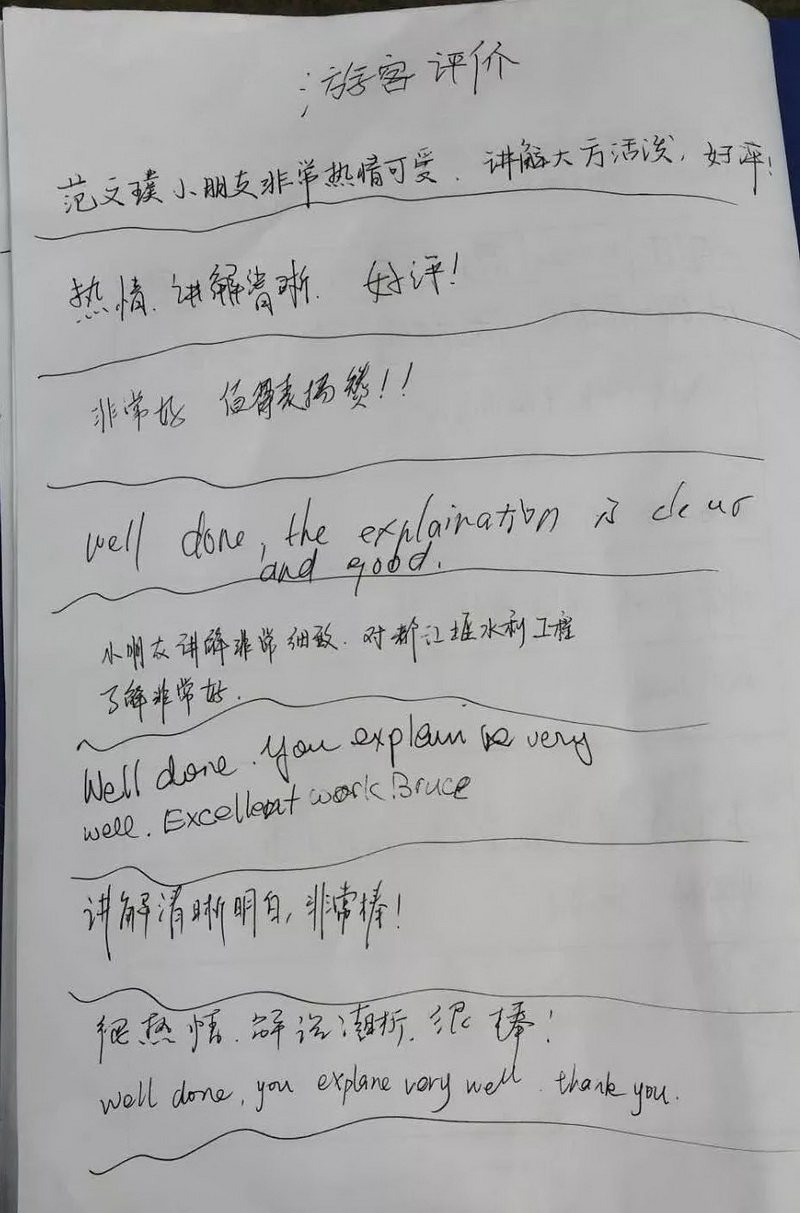 游客评价
范文璞小朋友非常热情可爱。讲解大方活泼,好评!
热情.讲解清晰. 好评!
非常好 值得表扬赞!!
well done, the explaination is clear
and good.
小朋友讲解非常细致.对都江堰水利工程
了解非常好.
Well done. You explain is very
well. Excellent work Bruce
讲解清晰明白,非常棒!
很热情.解说清晰.很棒!
well done, you explane very well. thank you.